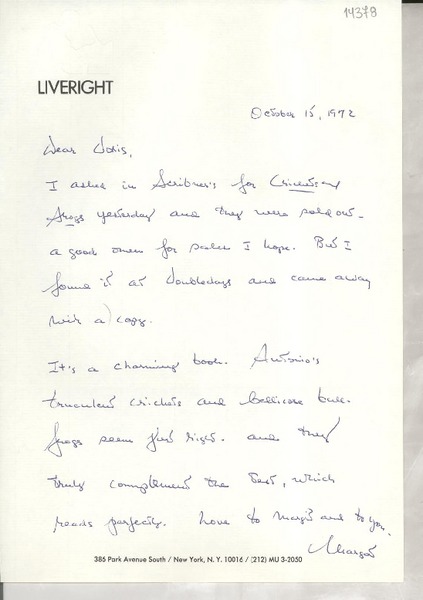 14378
LIVERIGHT
October 15, 1972
Dear Doris,
I asked in Scribner's for Crickets and
Frogs yesterday and they were sold out -
a good omen for sales I hope. But I
found it at Doubledays and came away
with a copy.
It's a charming book. Antonio's
truculent crickets and bellicose bull-
frogs seem just right - and they
truly complement the text, which
reads perfectly. Love to Margit and to you.
Margot
386 Park Avenue South / New York, N. Y. 10016 / (212) MU 3-2050